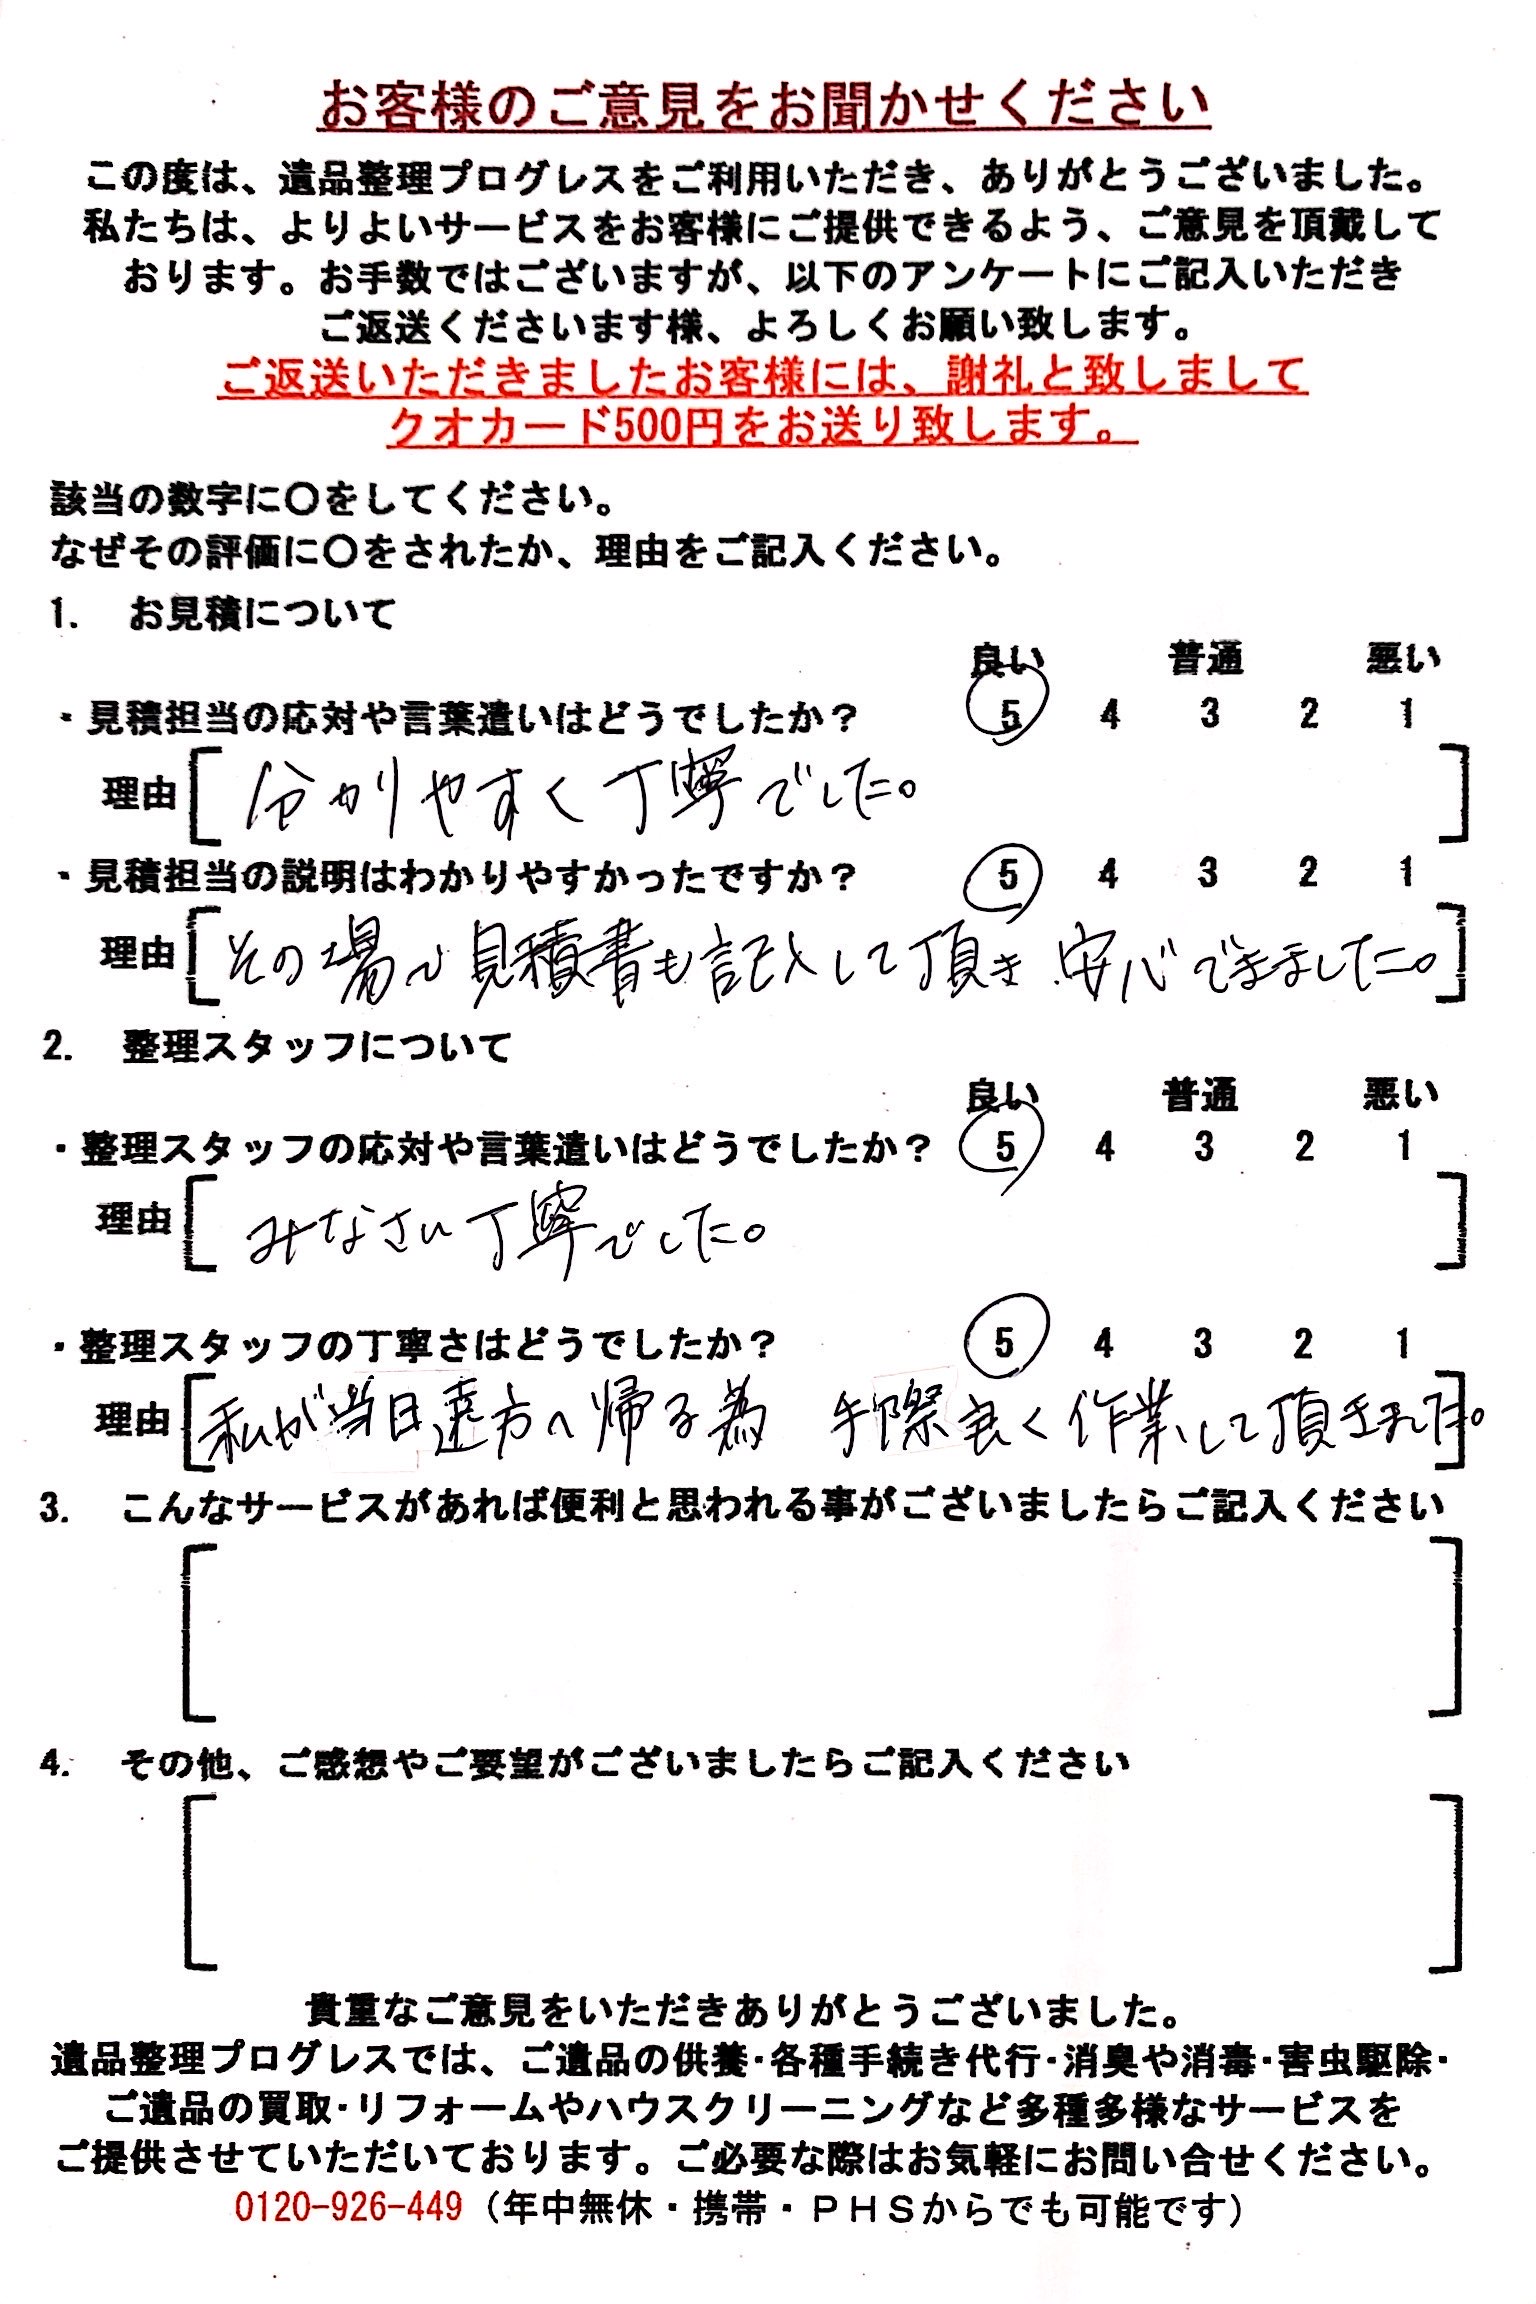 お客様のご意見をお聞かせください
この度は、遺品整理プログレスをご利用いただき、ありがとうございました。
私たちは、よりよいサービスをお客様にご提供できるよう、ご意見を頂戴して
おります。お手数ではございますが、以下のアンケートにご記入いただき
ご返送くださいます様、よろしくお願い致します。
ご返送いただきましたお客様には、謝礼と致しまして
クオカード500円をお送り致します。
該当の数字に〇をしてください。
なぜその評価に〇をされたか、理由をご記入ください。
1. お見積について
良い 普通 悪い
・見積担当の応対や言葉遣いはどうでしたか? 5 4 3 2 1
理由 [分かりやすく丁寧でした。]
・見積担当の説明はわかりやすかったですか? 5 4 3 2 1
理由 [その場で見積書も記入して頂き 安心できました。]
2. 整理スタッフについて
良い 普通 悪い
・整理スタッフの応対や言葉遣いはどうでしたか? 5 4 3 2 1
理由 [みなさい丁寧でした。]
・整理スタッフの丁寧さはどうでしたか? 5 4 3 2 1
理由 [私が当日遠方へ帰る為 手際良く作業して頂きました。]
3. こんなサービスがあれば便利と思われる事がございましたらご記入ください
4. その他、ご感想やご要望がございましたらご記入ください
貴重なご意見をいただきありがとうございました。
遺品整理プログレスでは、ご遺品の供養・各種手続き代行・消臭や消毒・害虫駆除・
ご遺品の買取・リフォームやハウスクリーニングなど多種多様なサービスを
ご提供させていただいております。ご必要な際はお気軽にお問い合せください。
0120-926-449（年中無休・携帯・PHSからでも可能です）